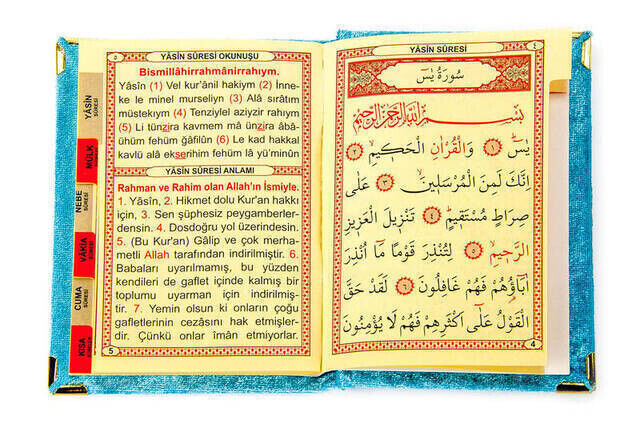 ٥
YÂSİN SÛRESİ OKUNUŞU
Bismillâhirrahmânirrahıym.
Yâsîn (1) Vel kur'ânil hakiym (2) İnne-
ke le minel murseliyn (3) Alâ sırâtım
müstekıym (4) Tenziylel aziyzir rahıym
(5) Li tünzira kavmem mâ ünzira âbâ-
ühüm fehüm gâfilûn (6) Le kad hakkal
kavlü alâ ekserihim fehüm lâ yü'minûn
YÂSİN SÛRESİ ANLAMI
Rahman ve Rahim olan Allah'ın İsmiyle.
1. Yâsîn, 2. Hikmet dolu Kur'an hakkı
için, 3. Sen şüphesiz peygamberler-
densin. 4. Dosdoğru yol üzerindesin.
5. (Bu Kur'an) Gâlip ve çok merha-
metli Allah tarafından indirilmiştir. 6.
Babaları uyarılmamış, bu yüzden
kendileri de gaflet içinde kalmış bir
toplumu uyarman için indirilmiş-
tir. 7. Yemin olsun ki onların çoğu
gafletlerinin cezasını hak etmişler-
dir. Çünkü onlar îmân etmiyorlar.
5
YÂSİN
SÛRESİ
MÜLK
SÛRESİ
NEBE
SÛRESİ
VÂKIA
SÛRESİ
CUMA
SÛRESİ
KISA
SÛRELER
YÂSİN SÛRESİ
٤
سُورَةُ يٰسٓ
بِسْمِ اللّٰهِ الرَّحْمٰنِ الرَّحِيمِ
يٰسٓ ۝١ وَالْقُرْاٰنِ الْحَكِيمِ ۝٢
اِنَّكَ لَمِنَ الْمُرْسَلِينَ ۝٣ عَلٰى
صِرَاطٍ مُسْتَقِيمٍ ۝٤ تَنْزِيلَ الْعَزِيزِ
الرَّحِيمِ ۝٥ لِتُنْذِرَ قَوْمًا مَٓا اُنْذِرَ
اٰبَٓاؤُ۬هُمْ فَهُمْ غَافِلُونَ ۝٦ لَقَدْ حَقَّ
الْقَوْلُ عَلٰٓى اَكْثَرِهِمْ فَهُمْ لَا يُؤْمِنُونَ
4